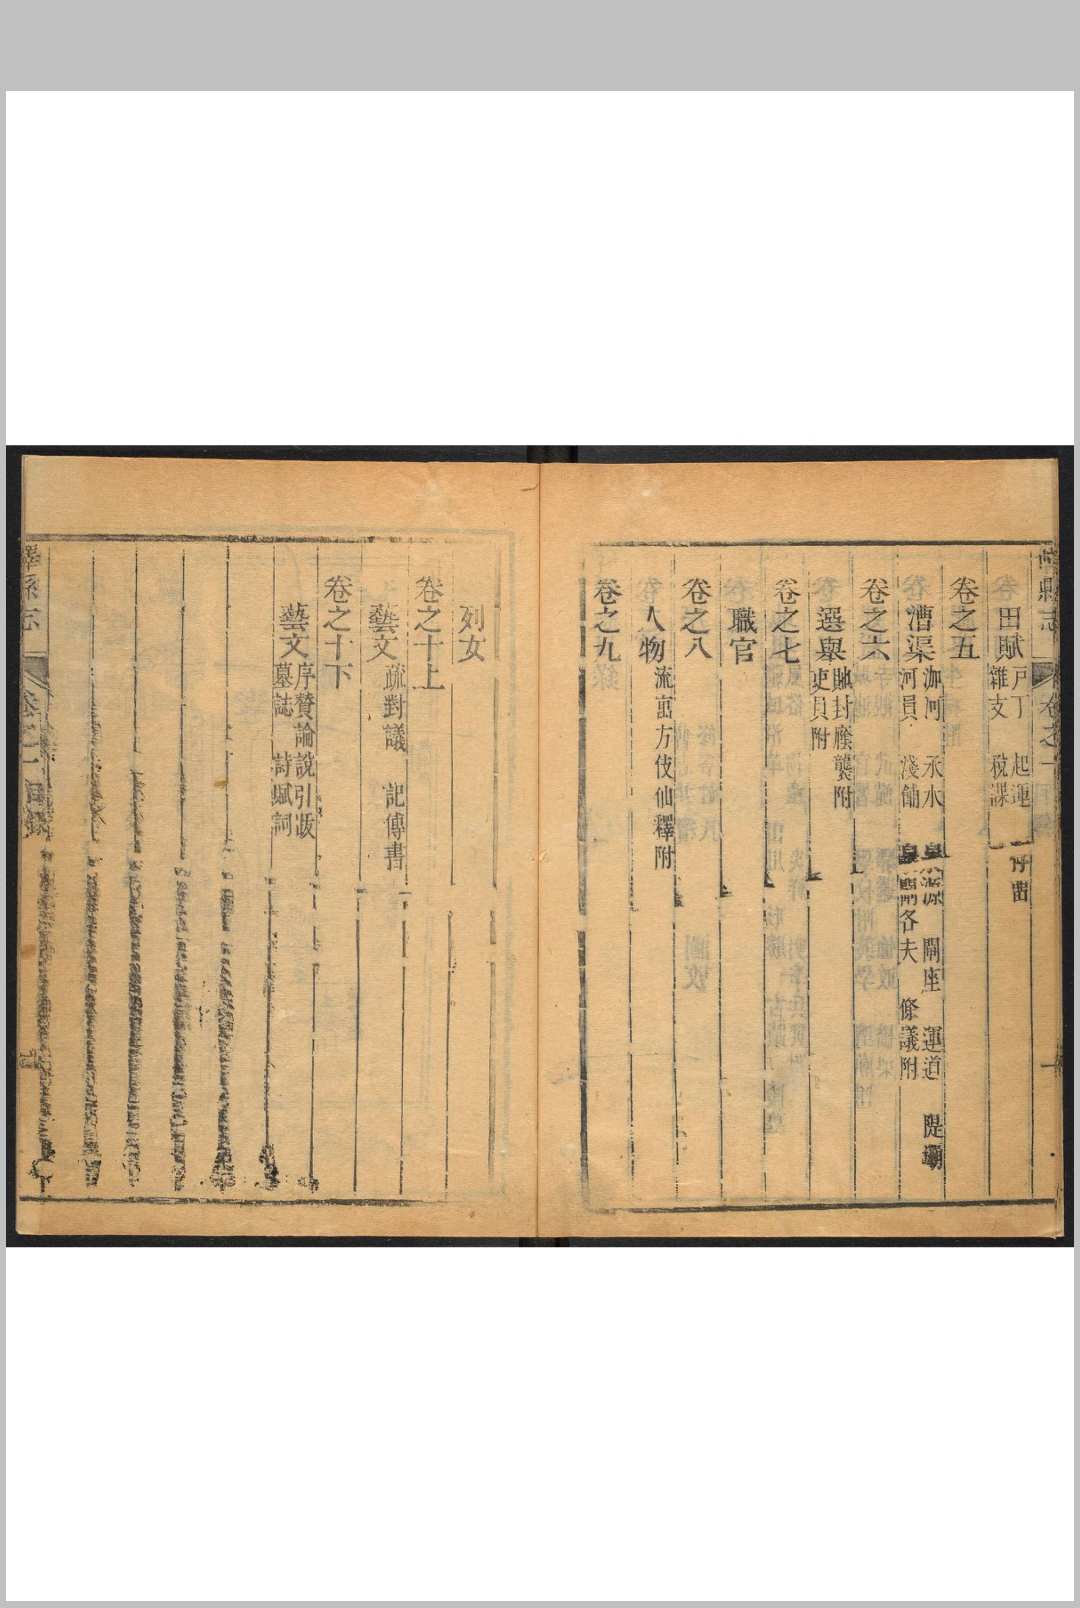 嶧縣志
卷之一
田賦
戶丁 起運 存留
雜支 稅課
卷之五
漕渠
泇河 永水 泉源 閘座 運道 隄壩
河員 淺舖 泉閘各夫 條議附
卷之六
選舉
貤封廕襲附
吏員附
卷之七
職官
卷之八
人物
流寓方伎仙釋附
卷之九
列女
卷之十上
藝文
疏對議 記傳書
卷之十下
藝文
序贊論說引跋
墓誌 詩賦詞
嶧縣志
卷之一 目錄